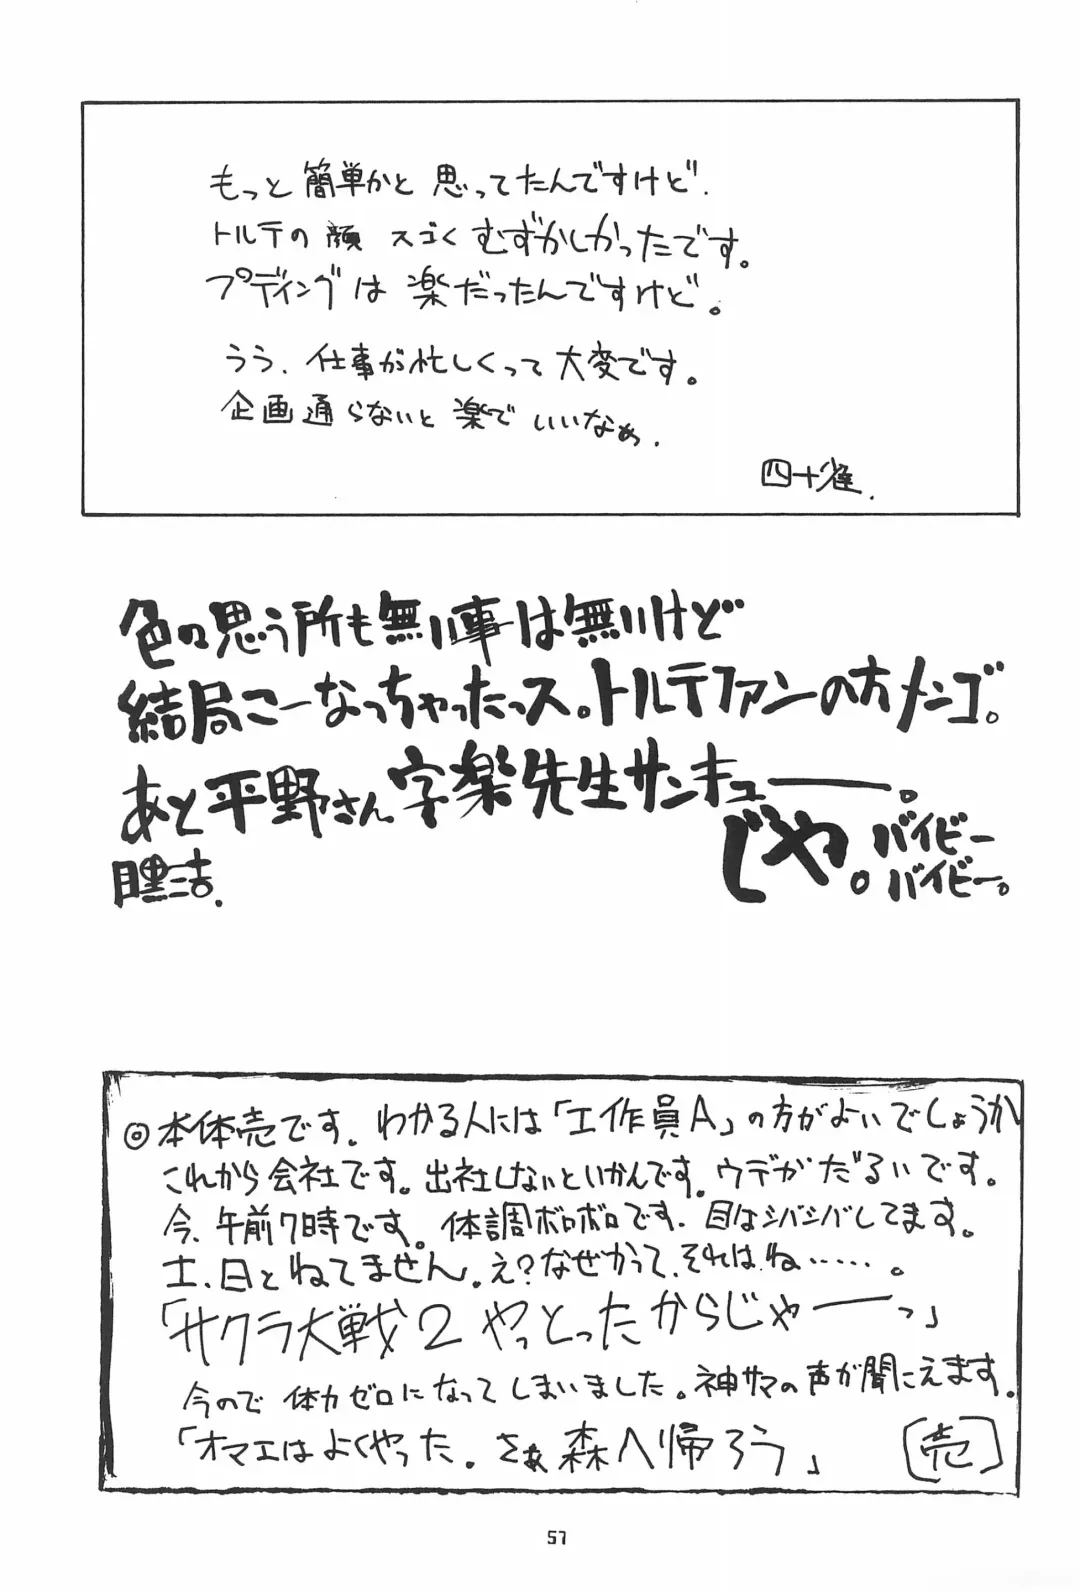 もっと簡単かと思ってたんですけど.
トルテの顔 スゴくむずかしかったです。
プディングは楽だったんですけど。
うう、仕事が忙しくって大変です。
企画通らないと楽でいいなぁ.
四十雀.
色々思う所も無い事は無いけど
結局こーなっちゃったっス。トルテファンの方メンゴ。
あと平野さん 字楽先生サンキュー――。
じゃ。バイビー
バイビー。
◎本体売です。わかる人には「工作員A」の方がよいでしょうか
これから会社です。出社しないといかんです。ウデがだるいです。
今、午前7時です。体調ボロボロです、目はシバシバしてます。
土、日とねてません。え?なぜかって、それは、ね……。
「サクラ大戦2 やっとったからじゃーーっ」
今ので体力ゼロになってしまいました。神サマの声が聞こえます.
「オマエはよくやった。さぁ森へ帰ろう」
〔売〕
57